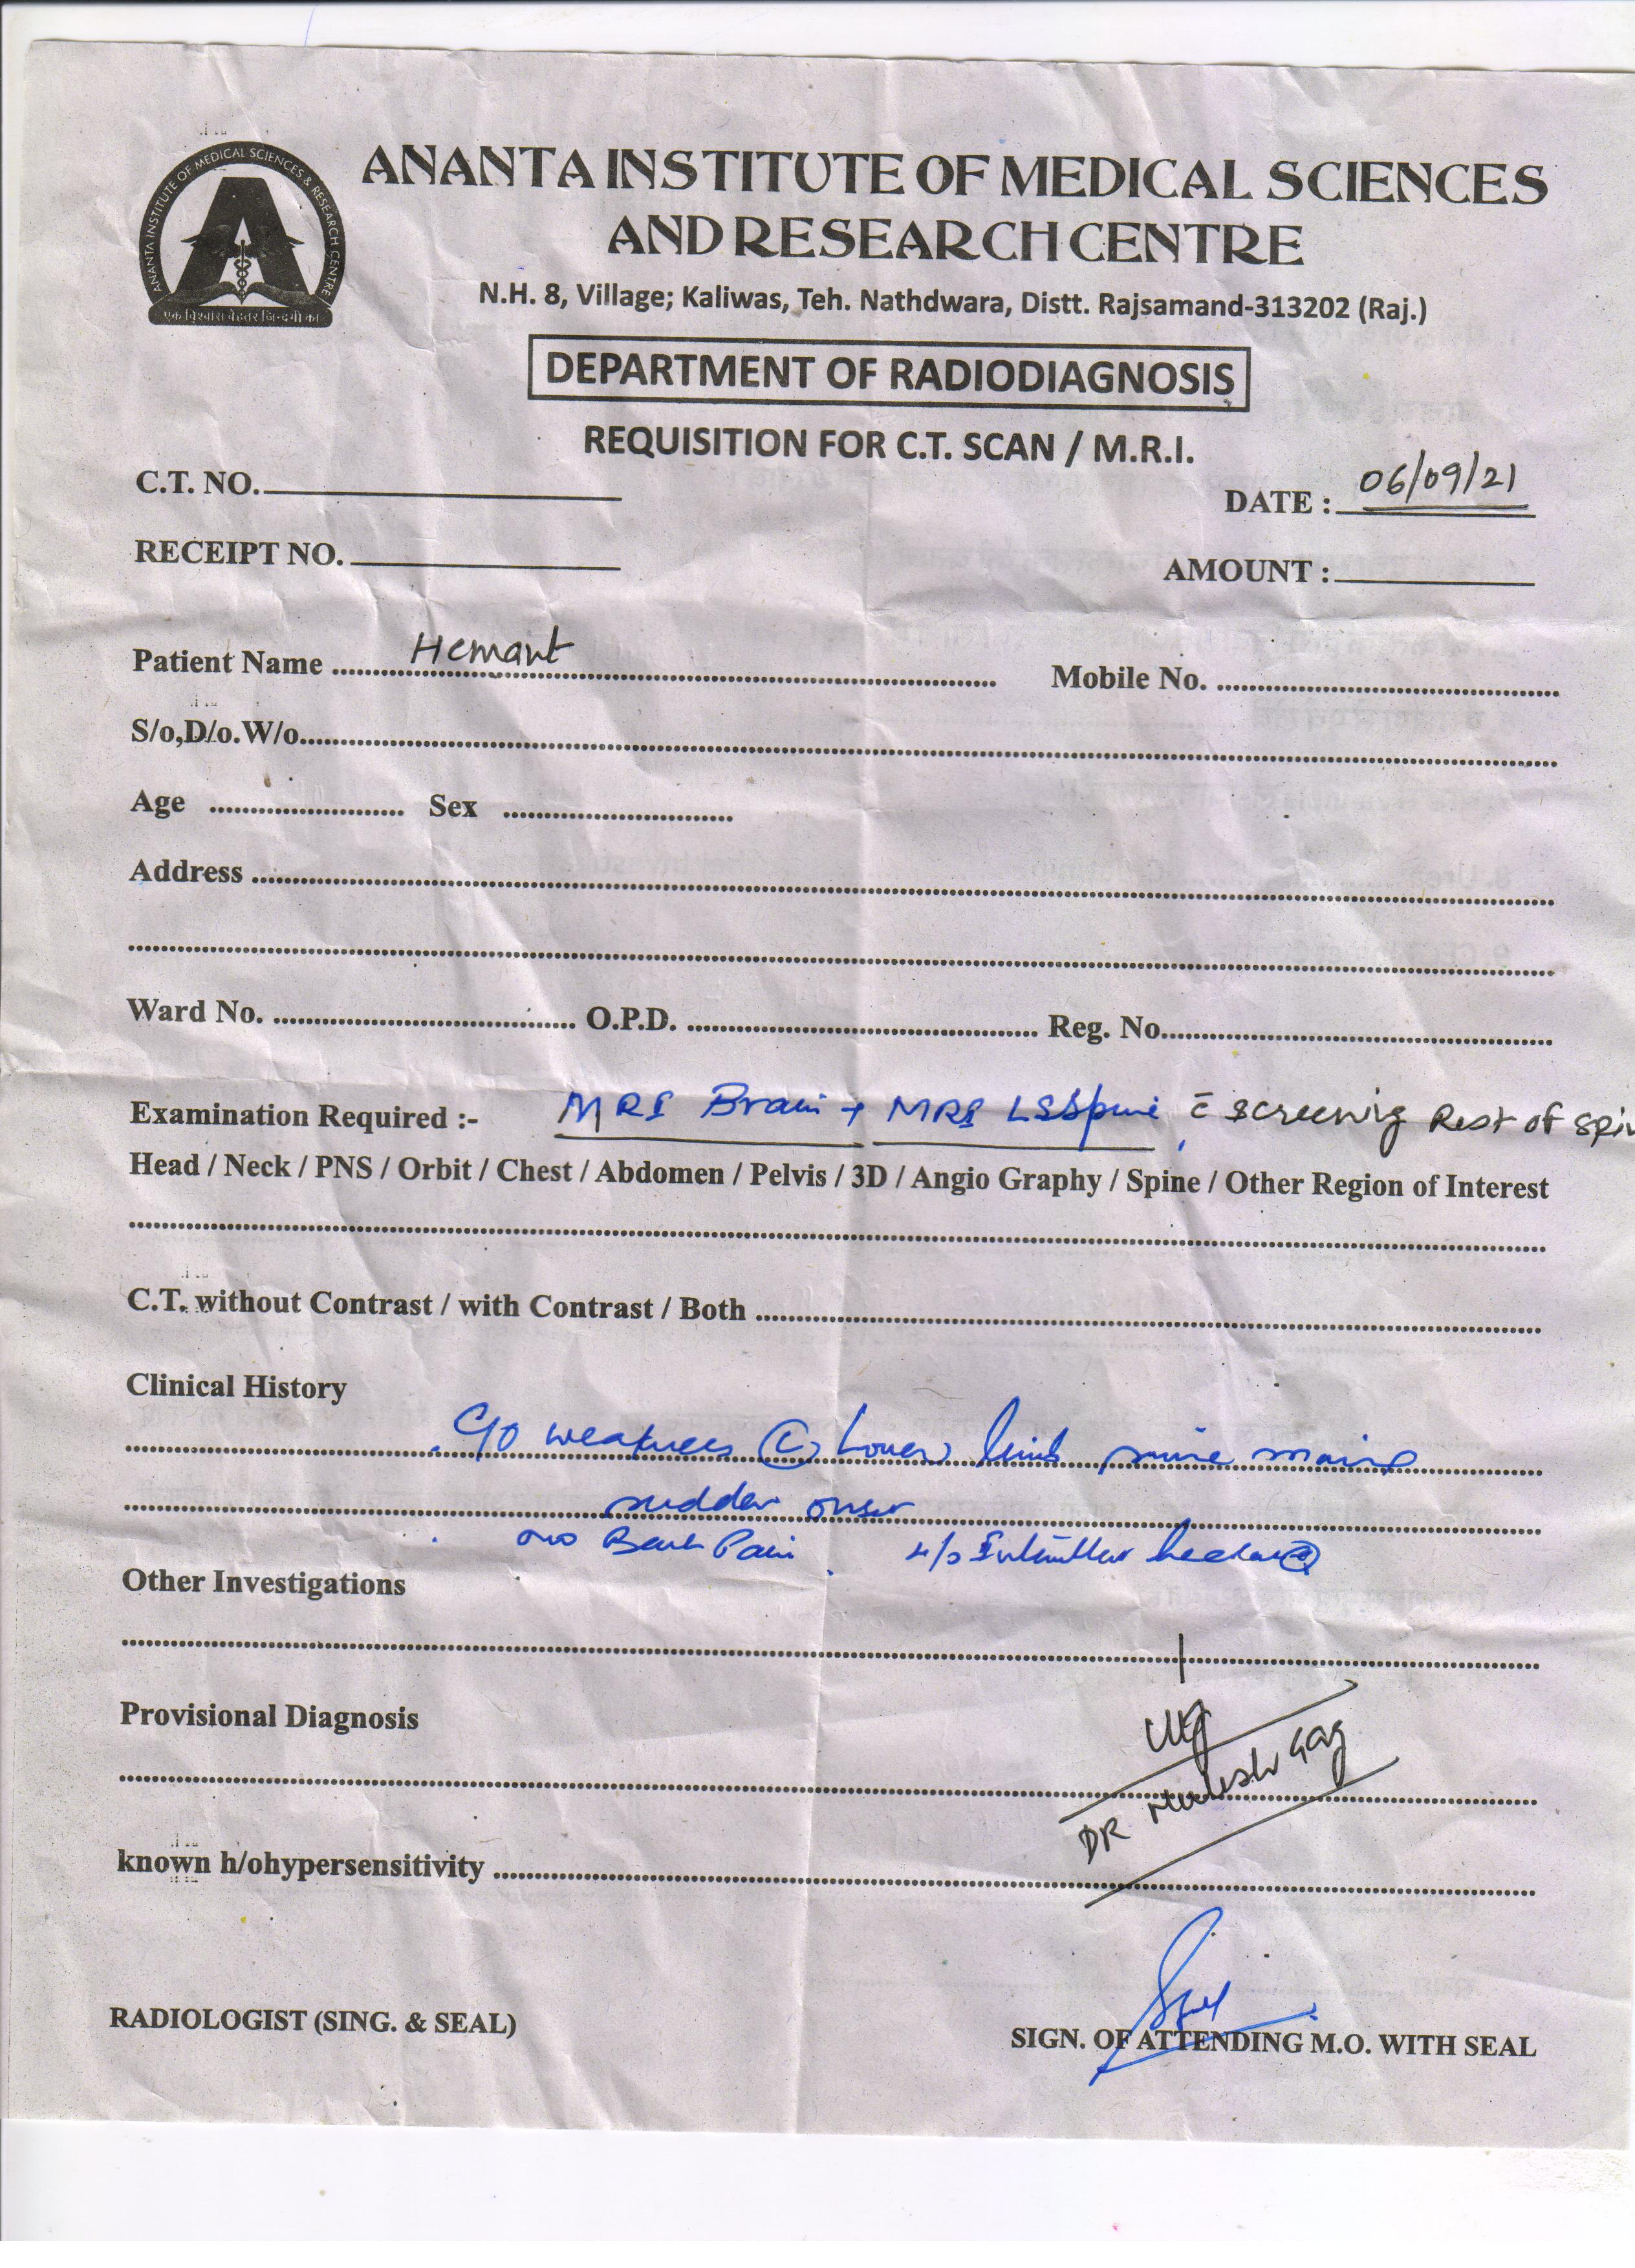 ANANTA INSTITUTE OF MEDICAL SCIENCES & RESEARCH CENTRE
एक विश्वास बेहतर जिन्दगी का
ANANTA INSTITUTE OF MEDICAL SCIENCES
AND RESEARCH CENTRE
N.H. 8, Village; Kaliwas, Teh. Nathdwara, Distt. Rajsamand-313202 (Raj.)
DEPARTMENT OF RADIODIAGNOSIS
REQUISITION FOR C.T. SCAN / M.R.I.
C.T. NO.
DATE : 06/09/21
RECEIPT NO.
AMOUNT :
Patient Name Hemant Mobile No.
S/o,D/o.W/o
Age Sex
Address
Ward No. O.P.D. Reg. No.
Examination Required :- MRI Brain + MRI LSSpine, c̄ screening Rest of Spin
Head / Neck / PNS / Orbit / Chest / Abdomen / Pelvis / 3D / Angio Graphy / Spine / Other Region of Interest
C.T. without Contrast / with Contrast / Both
Clinical History
C/o weakness (L) Lower limb since
sudden onset
Back Pain
Other Investigations
Provisional Diagnosis
DR Garg
known h/ohypersensitivity
RADIOLOGIST (SING. & SEAL)
SIGN. OF ATTENDING M.O. WITH SEAL